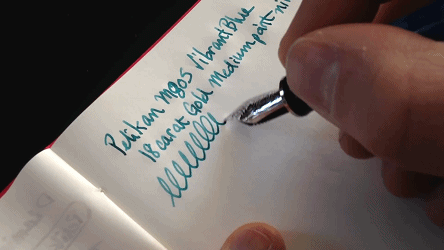 Pelikan M805 Vibrant Blue
18 carat Gold Medium point ni